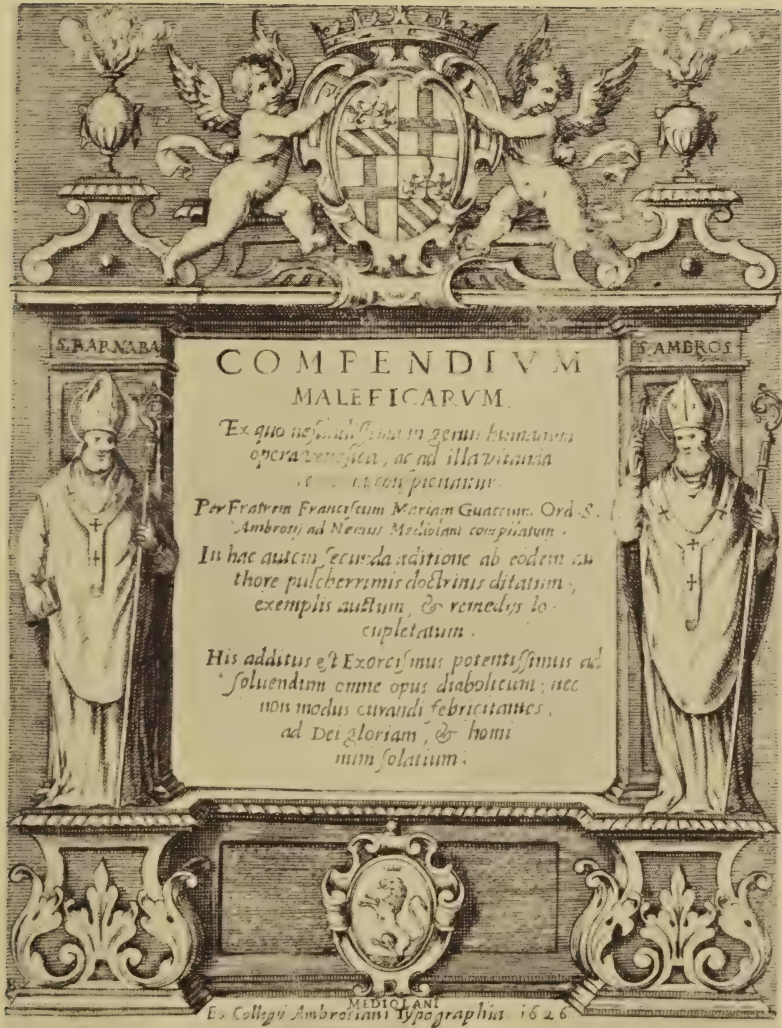 S. BARNABA
S. AMBROS.
COMPENDIVM
MALEFICARVM.
Ex quo in genus humanum
opera venefica, ac ad illa vitanda
conspiciuntur.
Per Fratrem Franciscum Mariam Guaccium. Ord. S.
Ambrosij ad Nemus Mediolani compilatum.
In hac autem secunda aditione ab eodem au
thore pulcherrimis doctrinis ditatum,
exemplis auctum, & remedijs lo
cupletatum.
His additus est Exorcismus potentissimus ad
soluendum omne opus diabolicum; nec
non modus curandi febricitantes,
ad Dei gloriam, & homi
num solatium.
MEDIOLANI
Ex Collegij Ambrosiani Typographia. 1626